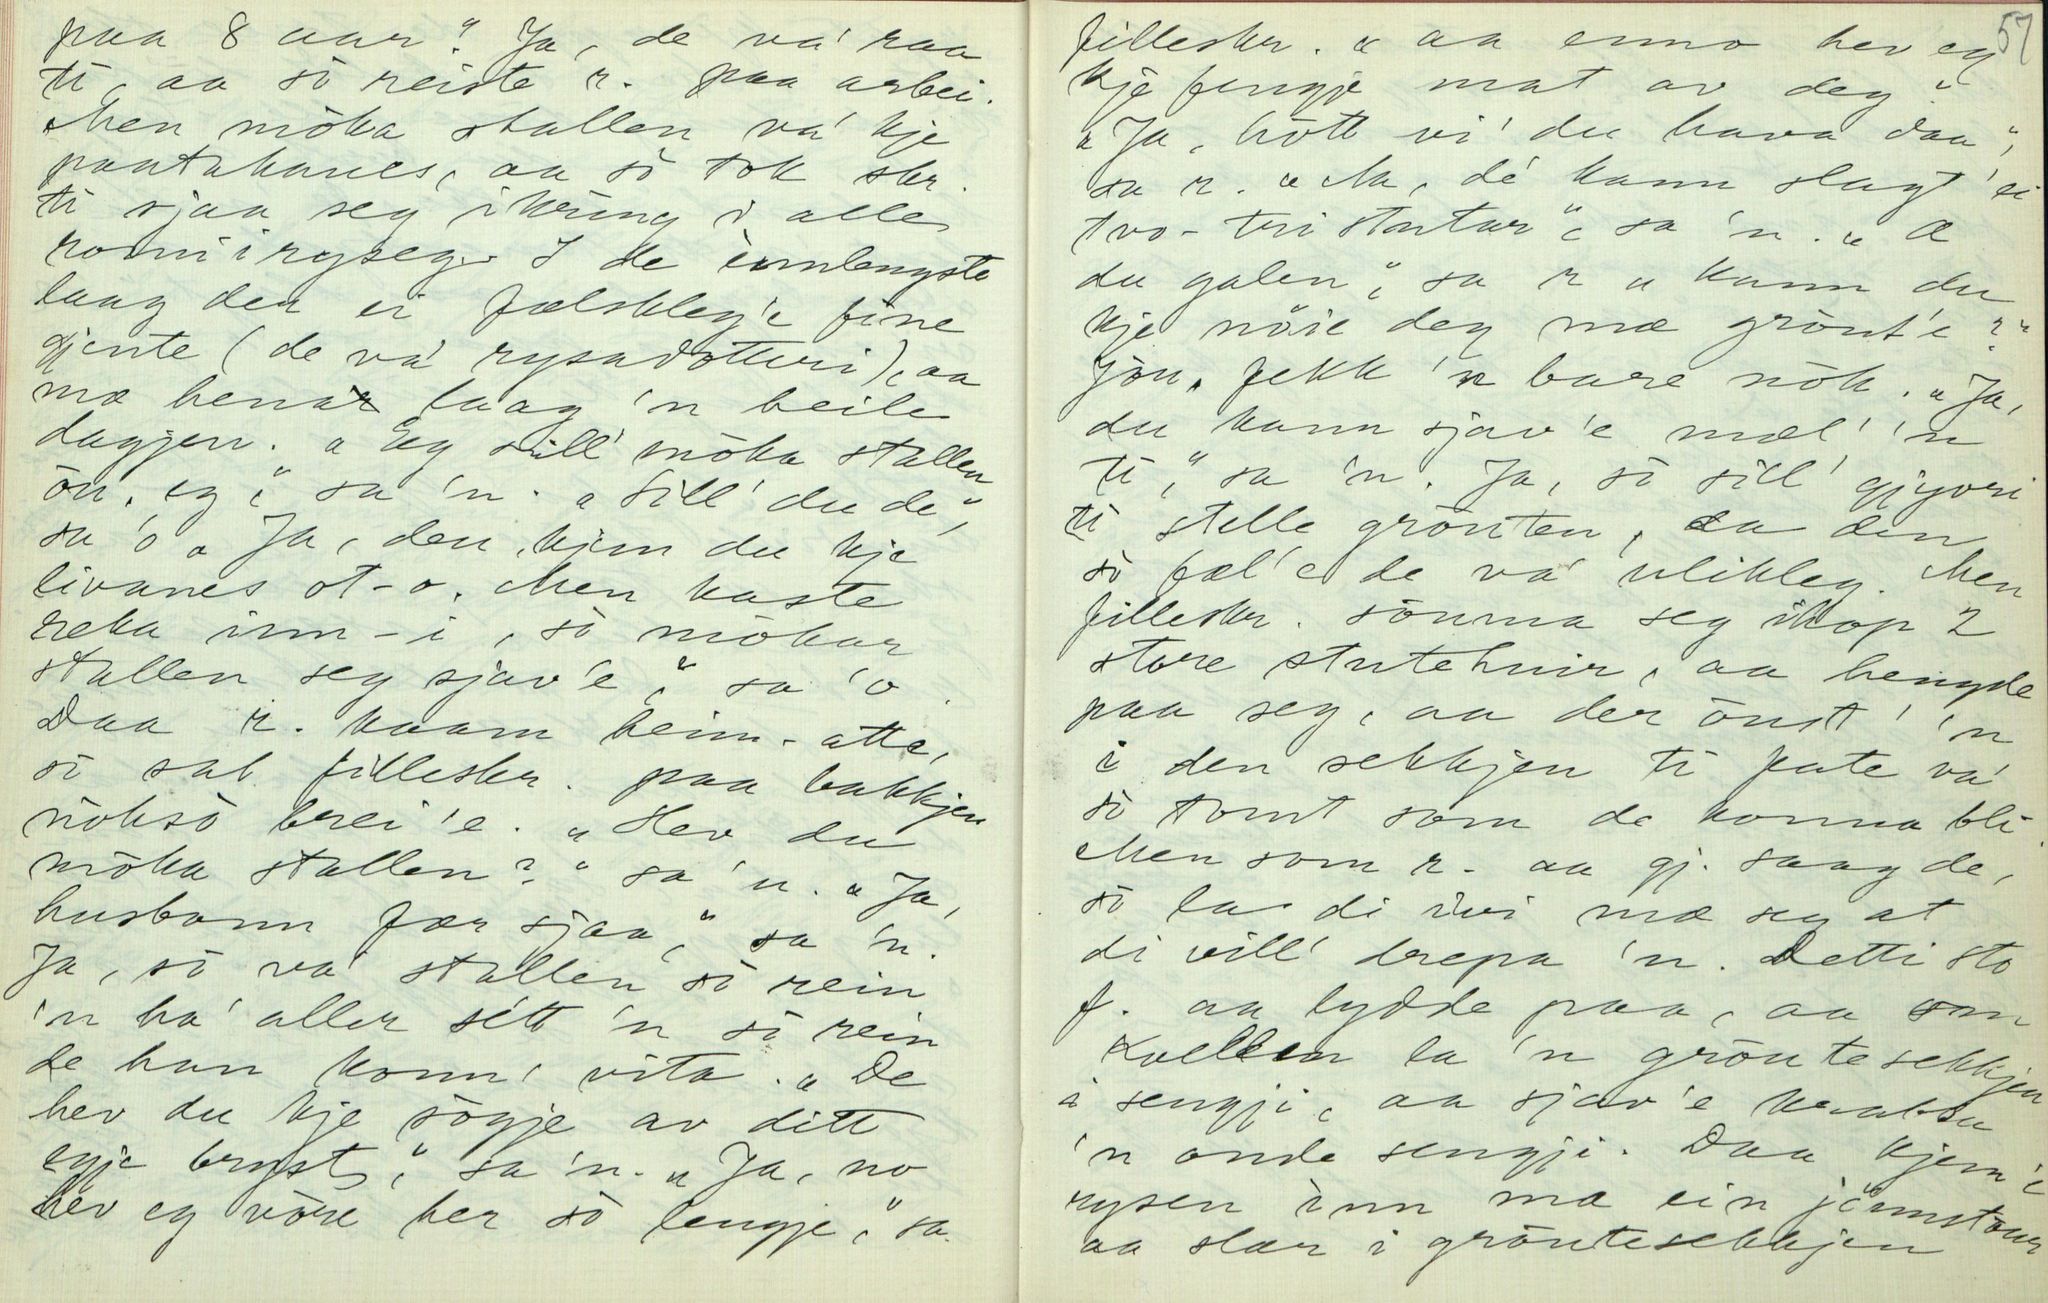 paa 8 aar." Ja, de va' raa
ti, aa sò reiste r. paa arbei.
Men mòka stallen va' kje
paatakanes, aa sò tok skr.
ti sjaa seg ikring i alle
romi i ryseg. I de innlengste
laag der ei fælskleg'e fine
gjente (de va' rysadotteri), aa
mæ henar laag 'n heile
dagjen. „Eg sill' mòka stallen
òn, eg," sa 'n. „Sill' du de",
sa 'o „Ja, den kjem du kje
livanes ot-o. Men kaste
reka inn-i, sò mòkar
stallen seg sjav'e," sa 'o.
Daa r. kaam heim-atte,
sò sat filleskr. paa bakkjen
nòksò brei'e. „Hev du
mòka stallen?" sa 'n. „Ja,
husbonn fær sjaa," sa 'n.
Ja, sò va' stallen sò rein
'n ha' aller sètt 'n sò rein
de han konn' vita. „De
hev du kje sògje av ditt
egje bryst," sa 'n. „Ja, no
hev eg vòre her sò lengje," sa
57
filleskr. „aa enno hev eg
kje fengje mat av deg"
„Ja, hòtt vi' du hava daa",
sa r. „Aa, dé kann slagt' ei
tvo-tri stutar", sa 'n. „Æ
du galen," sa r „kann du
kje nöie deg mæ grònt'e?"
Jòu, fekk 'n bare nòk. „Ja,
du kann sjav'e mæl' 'n
ti," sa 'n. Ja, sò sill' gjyvri
ti stelle grònten, aa den
sò fæl'e de va' ulikleg. Men
filleskr. sònma seg ihop 2
store stutehuir, aa hengde
paa seg, aa der ònst' 'n
i den sekkjen ti fate va'
sò tomt som de konna bli.
Men som r. aa gj. saag de,
sò la di ivi mæ seg at
di vill' drepa 'n. Detti sto
f. aa lydde paa, aa om
kvellen la 'n gròntesekkjen
i sengji, aa sjav'e krabba
'n onde sengji. Daa kjem'e
rysen inn mæ ein jònnstaur
aa slær i gròntesekkjen